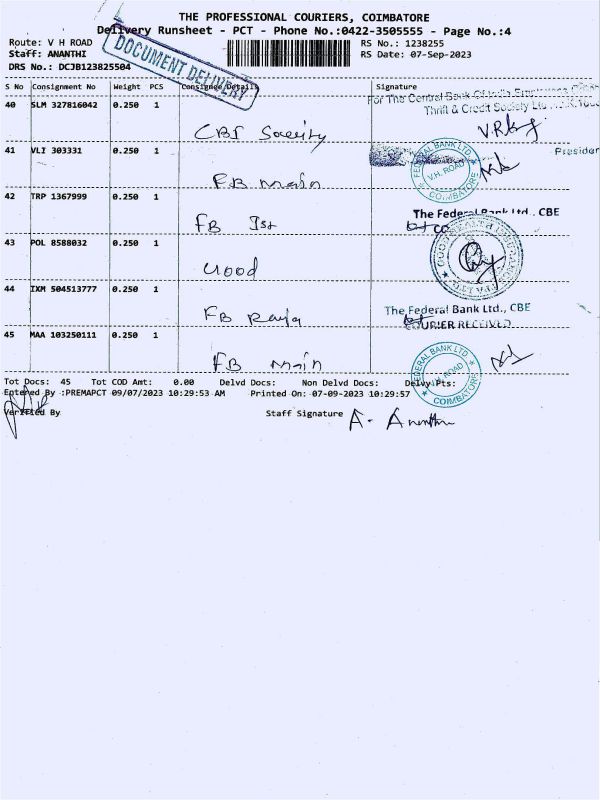 THE PROFESSIONAL COURIERS, COIMBATORE
Delivery Runsheet - PCT - Phone No.:0422-3505555 - Page No.:4
Route: V H ROAD RS No.: 1238255
Staff: ANANTHI RS Date: 07-Sep-2023
DRS No.: DCJB123825504
DOCUMENT DELIVERY
S No Consignment No Weight PCS Consignee Details Signature
For The Central Bank Of India Employees
Thrift & Credit Society
40 SLM 327816042 0.250 1
CBI Soceity
41 VLI 303331 0.250 1 President
FEDERAL BANK LTD. V.H. ROAD COIMBATORE
FB main
42 TRP 1367999 0.250 1 The Federal Bank Ltd., CBE
FB Ist
43 POL 8588032 0.250 1
44 IXM 504513777 0.250 1
The Federal Bank Ltd., CBE
FB COURIER RECEIVED
45 MAA 103250111 0.250 1
FB main FEDERAL BANK LTD. V.H. ROAD COIMBATORE
Tot Docs: 45 Tot COD Amt: 0.00 Delvd Docs: Non Delvd Docs: Delvy Pts:
Entered By :PREMAPCT 09/07/2023 10:29:53 AM Printed On: 07-09-2023 10:29:57
Verified By Staff Signature A. Ananthi